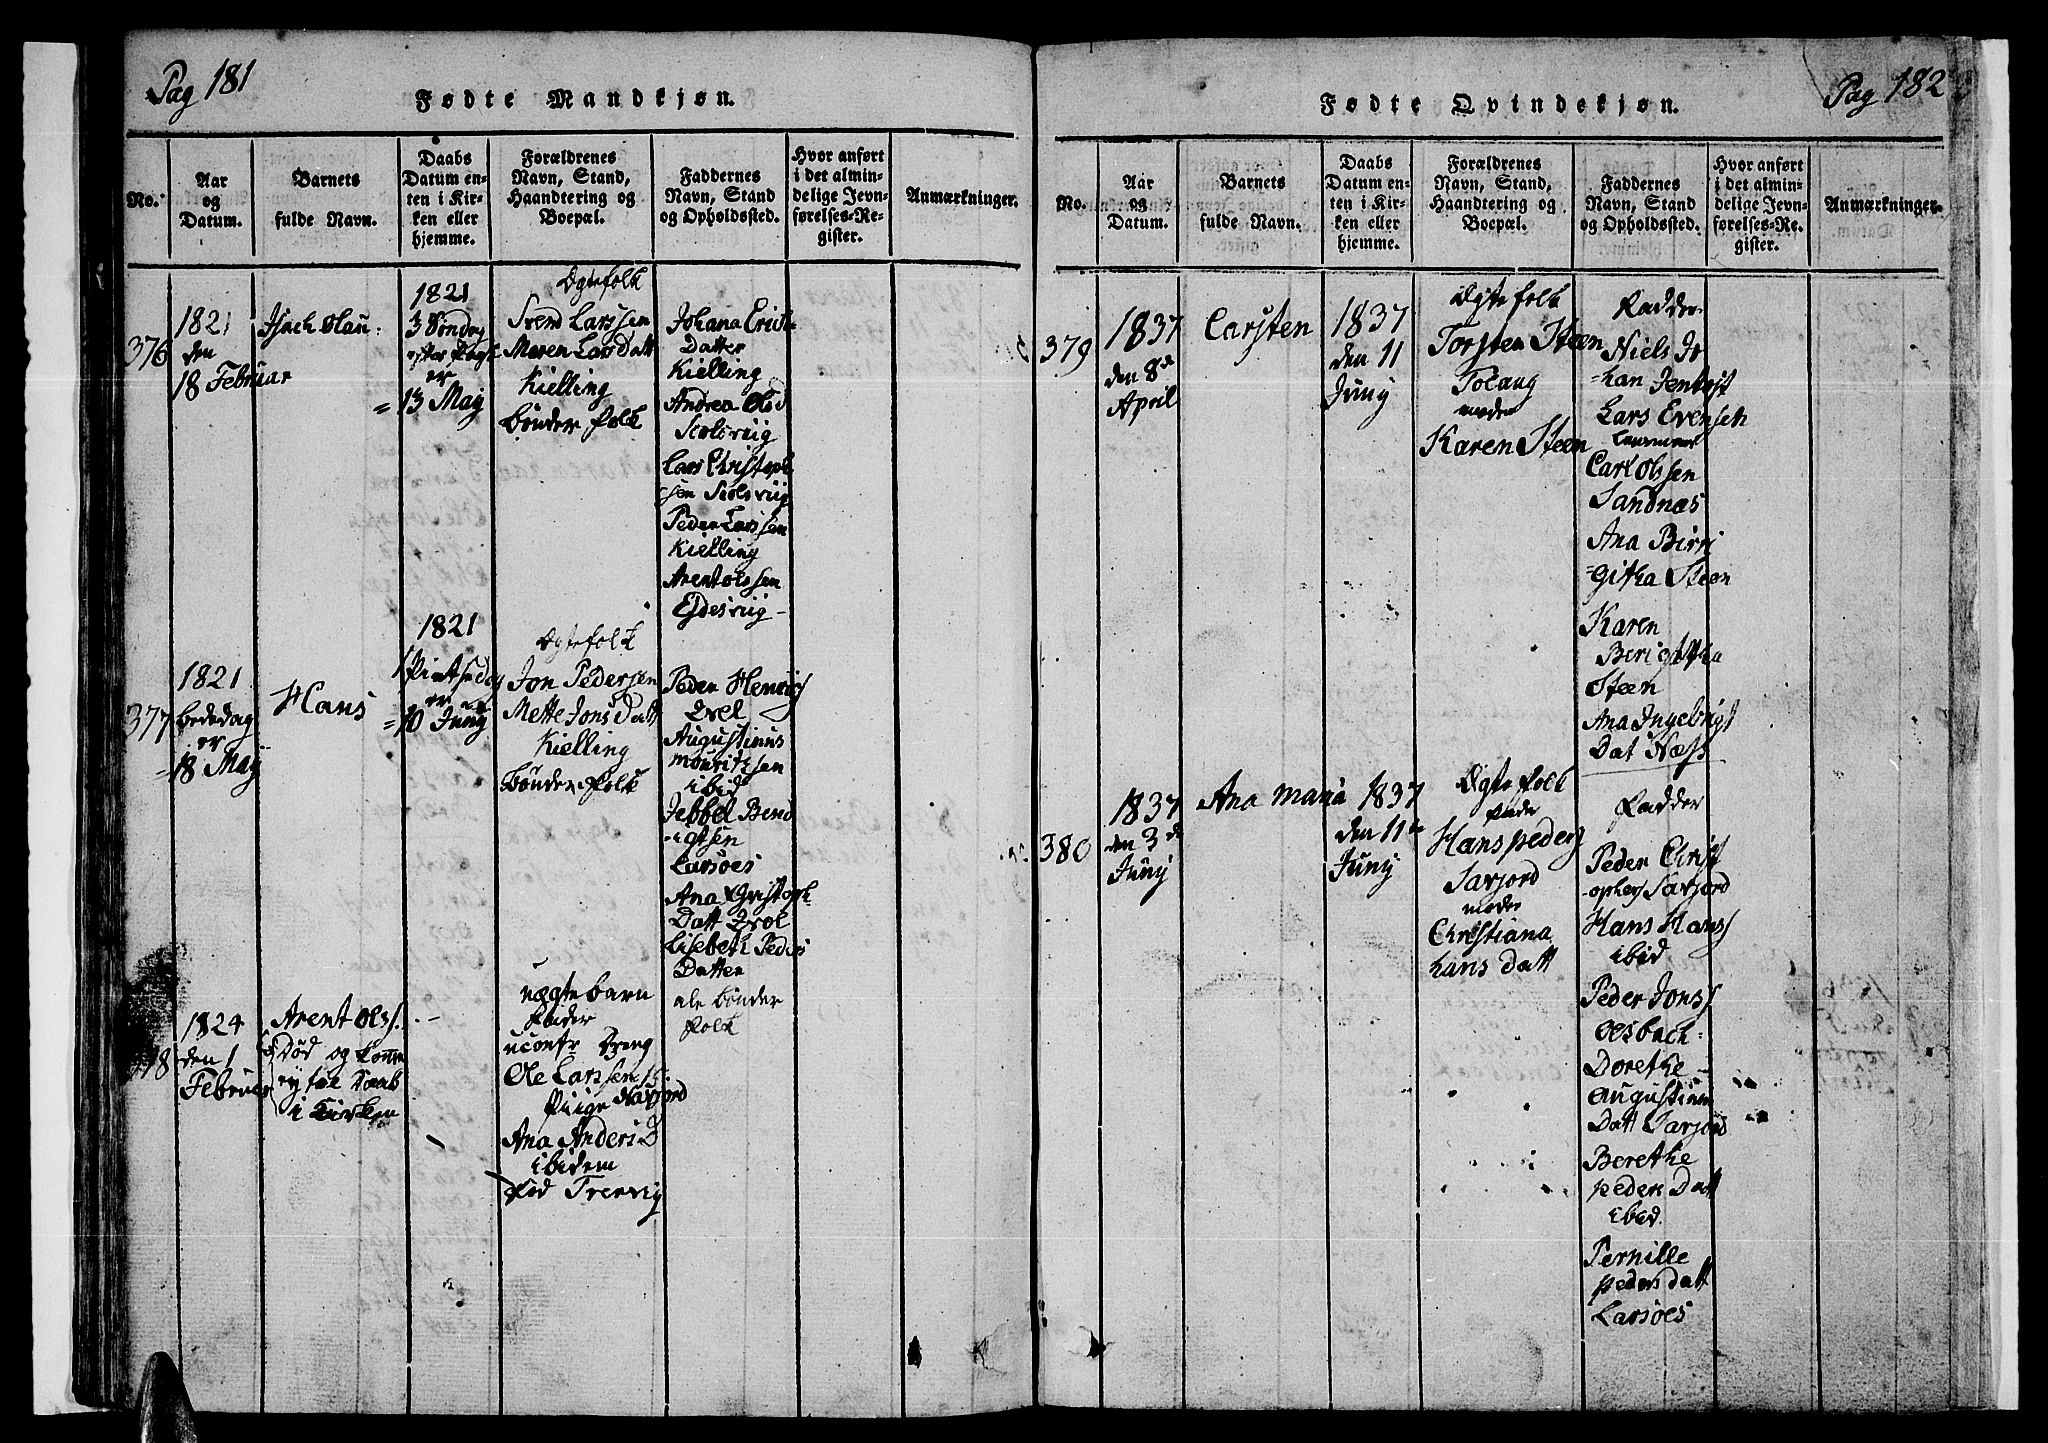 Pag 181
Fødte Mandkjøn.
No.
Aar
og
Datum.
Barnets
fulde Navn.
Daabs
Datum en-
ten i Kir-
ken eller
hjemme.
Forældrenes
Navn, Stand,
Haandtering og
Boepæl.
Faddernes
Navn, Stand
og Opholdssted.
Hvor anført
i det almin-
delige Jevn-
førelses-Re-
gister.
Anmærkninger.
376
1821
den
18 Februar
1821
3 Søndag
er
=13 May
Ægtefolk
Svend Larssen
Maren Lars Datt
Kielling
Bønder folk
Johana Erich
Datter
Kielling
Andrea Olsd
Lars Christoph
sen
Peder Larssen
Kielling
Arent olssen
Ejdesvig
377
1821
bededag
er
=18 May
Hans
1821
1 Pintsedag
er
=10 Juny
Ægtefolk
Jon Pedersen
Mette Jons Datt
Kielling
Bønder folk
Peder Henrichs
Augustinus
mouritzsen
ibid
Jebbel Bend
-igtsen
Larsøes
Ana Christoph
Datt
Lisebeth Peders
Datter
ale bønder
folk
1824
den 1
Februar
Arent Ols
Død og
i Kirken
uægte barn
Fader
uconfr Dreng
Ole Larssen
Savjord
Ana Anders D
ibidem
Pag 182
Fødte Qvindekjøn.
No.
Aar
og
Datum.
Barnets
fulde Navn.
Daabs
Datum en-
ten i Kir-
ken eller
hjemme.
Forældrenes
Navn, Stand,
Haandtering og
Boepæl.
Faddernes
Navn, Stand
og Opholdssted.
Hvor anført
i det almin-
delige Jevn-
førelses-Re-
gister.
Anmærkninger.
379
1837
den 8de
April
Carsten
1837
den 11
Juny
Ægte folk
Torsten Steen
moder
Karen Steen
Fadder
Niels Jo
=han Jentoft
Lars Evensen
Carl Olssen
Sandnæs
Ana Birri
=githa Steen
Karen
Berigitha
Steen
Ana Ingebrigt
Dat Næss
380
1837
den 3de
Juny
Ana Maria
1837
den 11te
Juny
Ægte folk
Fader
Hans peders
Savjord
moder
Christiana
hans Datt
Fadder
Peder Christ
-ophers Savjord
Hans Hans
ibid
Peder Jons
Olsbach
Dorethe
Augustinus
Datt Savjord
Berethe
peders Datt
ibid.
Pernille
peders datt
Larsøes